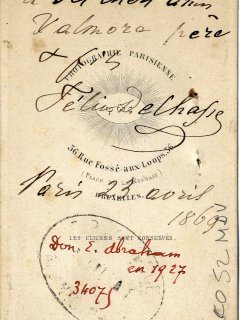 Valmore père
PHOTOGRAPHIE PARISIENNE
Félix Delhasse
36 Rue Fossé-aux-Loups. 36
(PLACE DE LA MONNAIE)
Paris 23 avril
BRUXELLES
1869
LES CLICHÉS SONT CONSERVÉS
Don E. Abraham
en 1927
34075